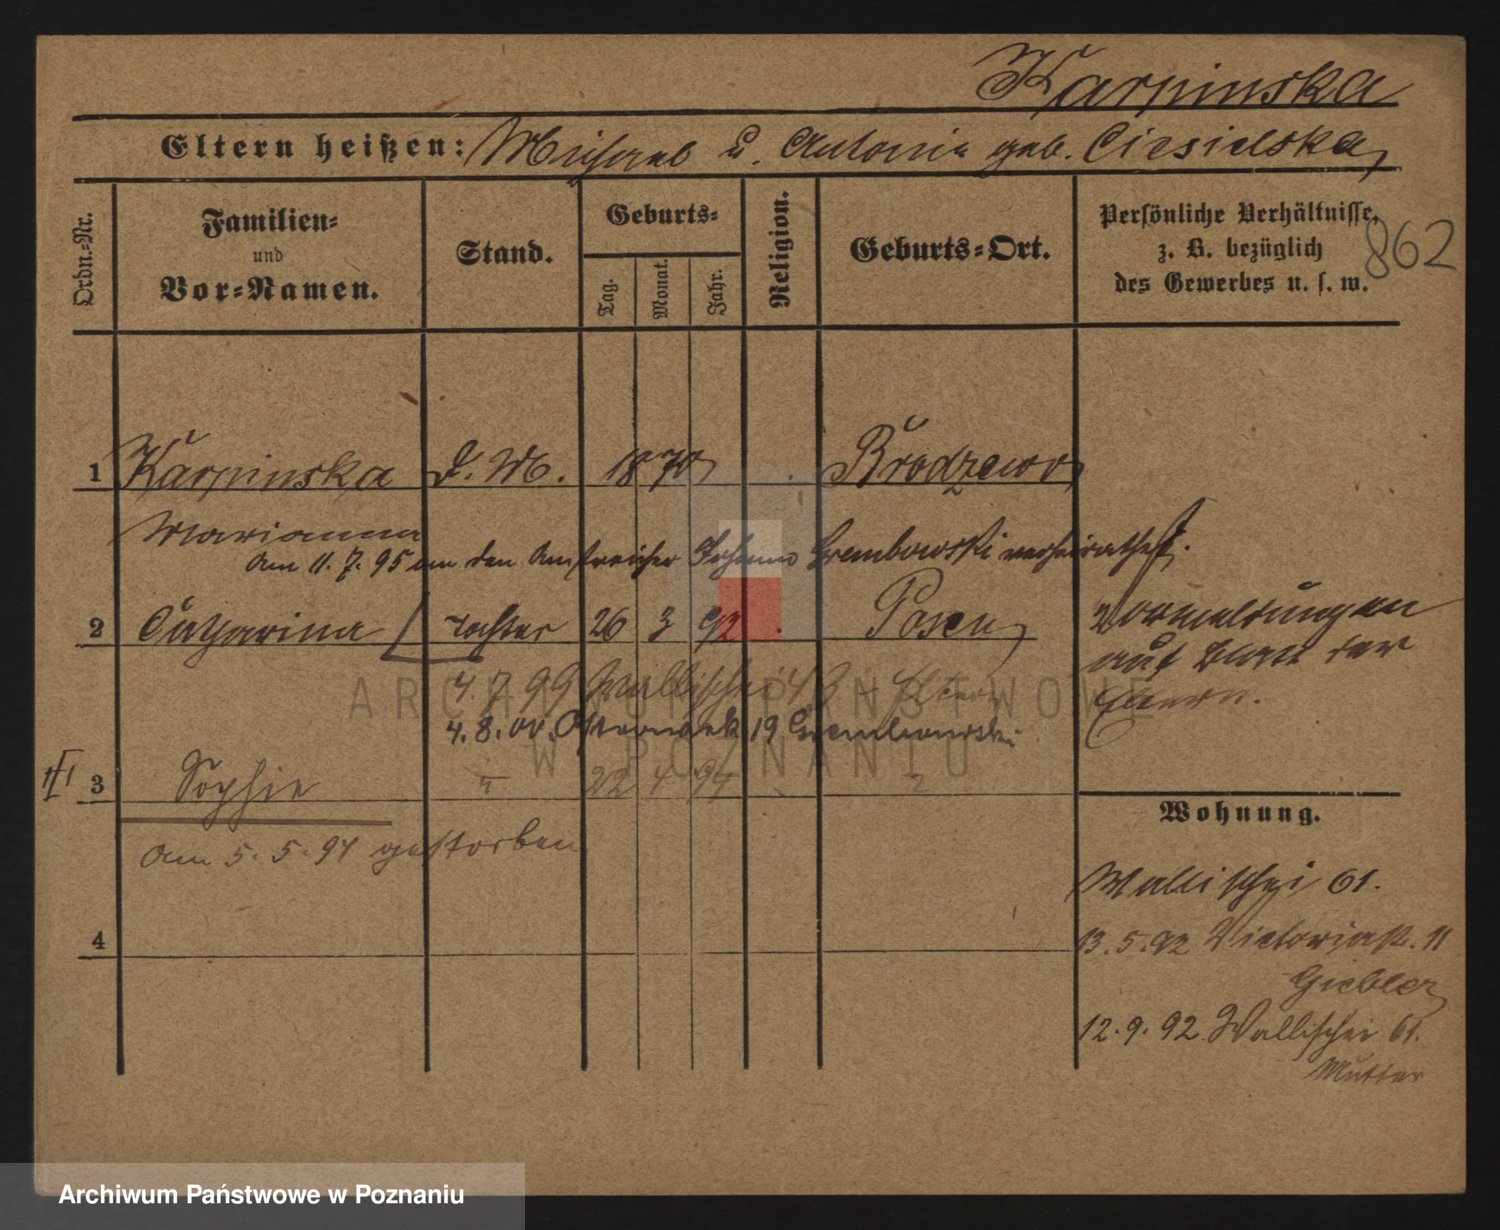 Karpinska
Eltern heißen: Michael u. Antonie geb. Ciesielska
Ordn.-Nr.
Familien- und Vor-Namen.
Stand.
Geburts-
Tag. Monat. Jahr.
Religion.
Geburts-Ort.
Persönliche Verhältnisse,
z. B. bezüglich
des Gewerbes u. s. w.
862
1 Karpinska D. M. 1870 Brodzewo
Marianna
am 11.7.95 an den Anstreicher Johann Grembowski verheirathet.
2 Catharina Tochter 26 3 92 Posen
Vormeldungen
auf Blatt der
Eltern.
4.7.99 Wallischei 43
4.8.00. Ostrowek 19 Grembowski
3 Sophie " 22 4 94 "
am 5.5.94 gestorben
4
Wohnung.
Wallischei 61.
13.5.92 Victoriastr. 11
Giebler
12.9.92 Wallischei 61.
Mutter
ARCHIWUM PAŃSTWOWE
W POZNANIU
Archiwum Państwowe w Poznaniu